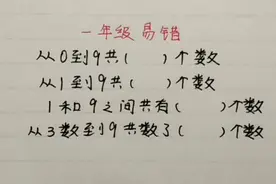 一年级易错
从0到9共( )个数
从1到9共( )个数
1和9之间共有( )个数
从3数到9共数了( )个数